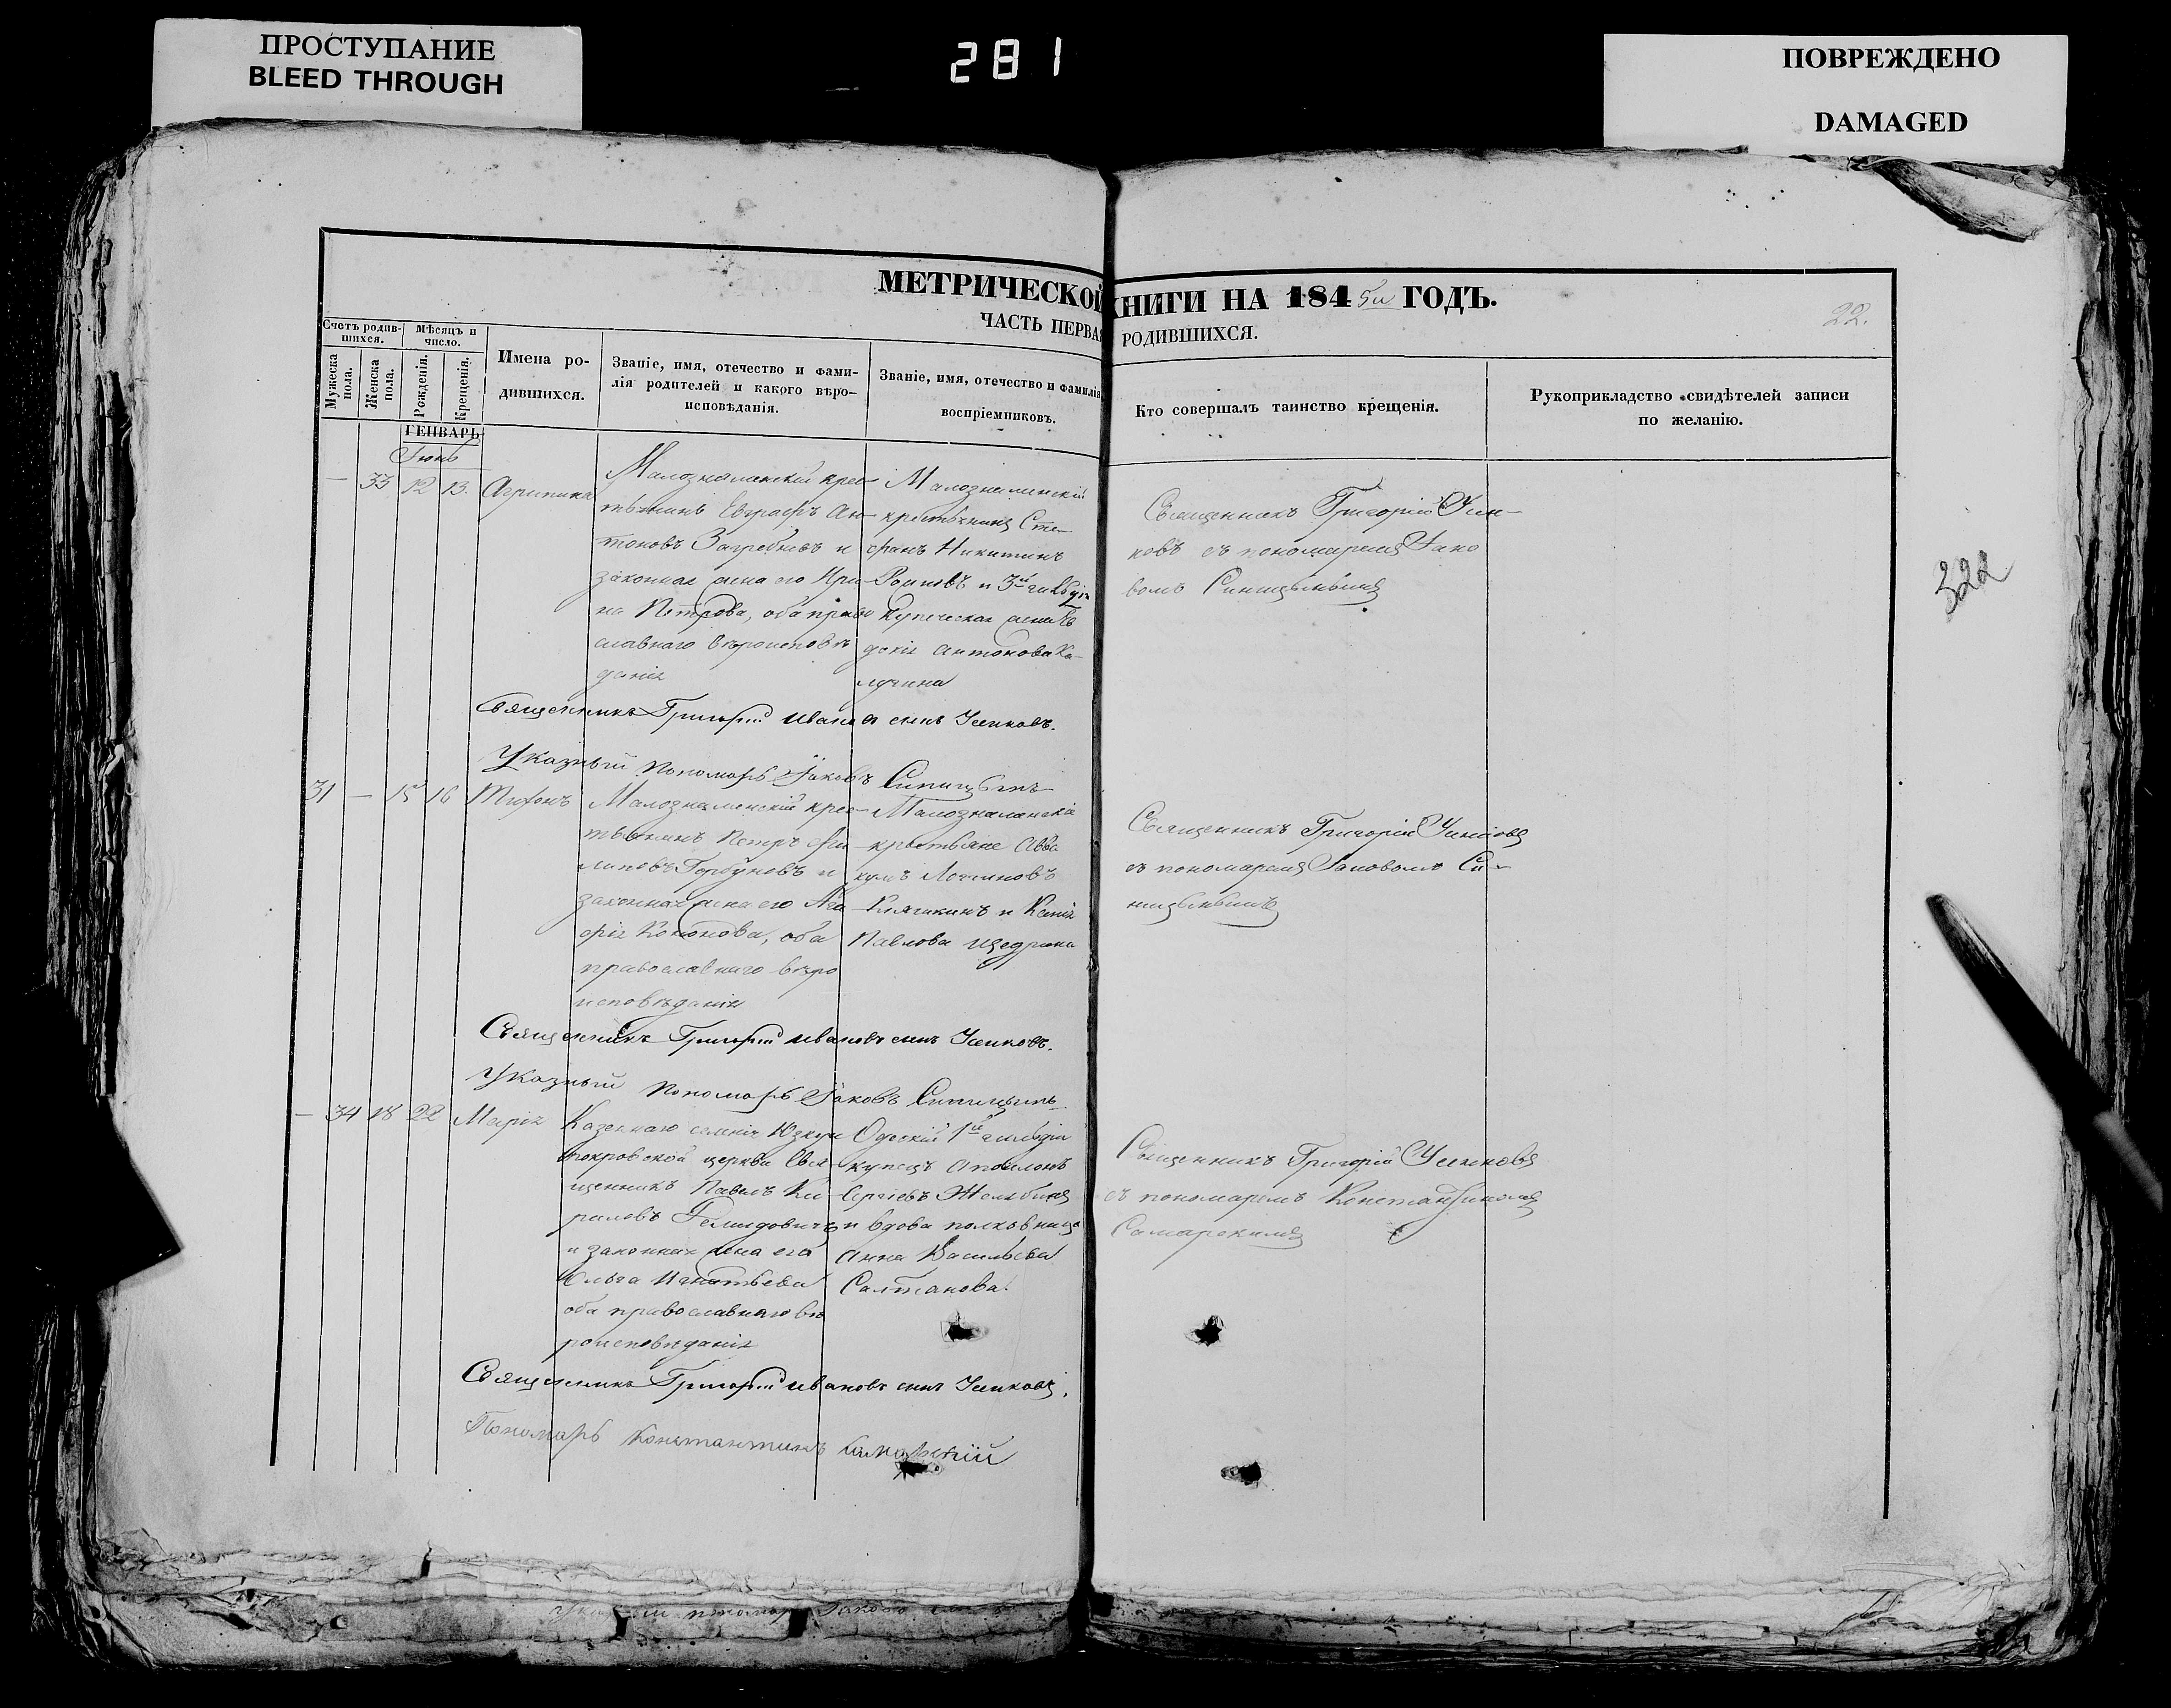 ПРОСТУПАНИЕ
BLEED THROUGH
281
ПОВРЕЖДЕНО
DAMAGED
МЕТРИЧЕСКОЙ КНИГИ НА 1845й ГОДЪ.
22.
ЧАСТЬ ПЕРВАЯ РОДИВШИХСЯ.
Счетъ родив-
шихся.
Мѣсяцъ и
число.
Мужеска
пола.
Женска
пола.
Рожденія.
Крещенія.
Имена ро-
дившихся.
Званіе, имя, отечество и фами-
лія родителей и какого вѣро-
исповѣданія.
Званіе, имя, отечество и фамилія
воспріемниковъ.
Кто совершалъ таинство крещенія.
Рукоприкладство свидѣтелей записи
по желанію.
ГЕНВАРЬ
Іюнь
— 33 12 13. Агрипина
Малознаменскій крес-
тьянинъ Евграфъ Ан-
тоновъ и
законная жена его Ири-
на Петрова, оба право
славнаго вѣроисповѣ
данія
Малознаменскій
крестьянинъ Сте-
фанъ Никитинъ
и 3й гильдіи
купеческая жена
Антонова Ка-
лугина
Священникъ Григорій Уси-
ковъ съ пономаремъ Іако
вомъ Синицынымъ
322
Священникъ Григорій Ивановъ сынъ Усиковъ.
Указный пономарь Іаковъ Синицынъ
31 — 15 16 Тифонъ
Малознаменскій крес-
тьянинъ Петръ Фи
липовъ Горбуновъ и
законная жена его Ага
фія Кононова, оба
православнаго вѣро
исповѣданія
Малознаменскіе
крестьяне Авва
кумъ Логиновъ
и Ксенія
Павлова Щедрина
Священникъ Григорій Усиковъ
съ пономаремъ Іаковомъ Си-
ницынымъ
Священникъ Григорій Ивановъ сынъ Усиковъ.
Указный пономарь Іаковъ Синицынъ
— 34 18 22 Марія
Казеннаго селенія
покровской церкви Свя-
щенникъ Павелъ Ки
риловъ
и законная жена его
Ольга Игнатьева
оба православнаго вѣ
роисповѣданія
Одескій 1й гильдіи
купецъ Аполонъ
Сергіевъ
и вдова полковница
Анна Васильева
Салтанова.
Священникъ Григорій Усиковъ
съ пономаремъ Константиномъ
Самарскимъ
Священникъ Григорій Ивановъ сынъ Усиковъ.
Пономарь Константинъ Самарскій